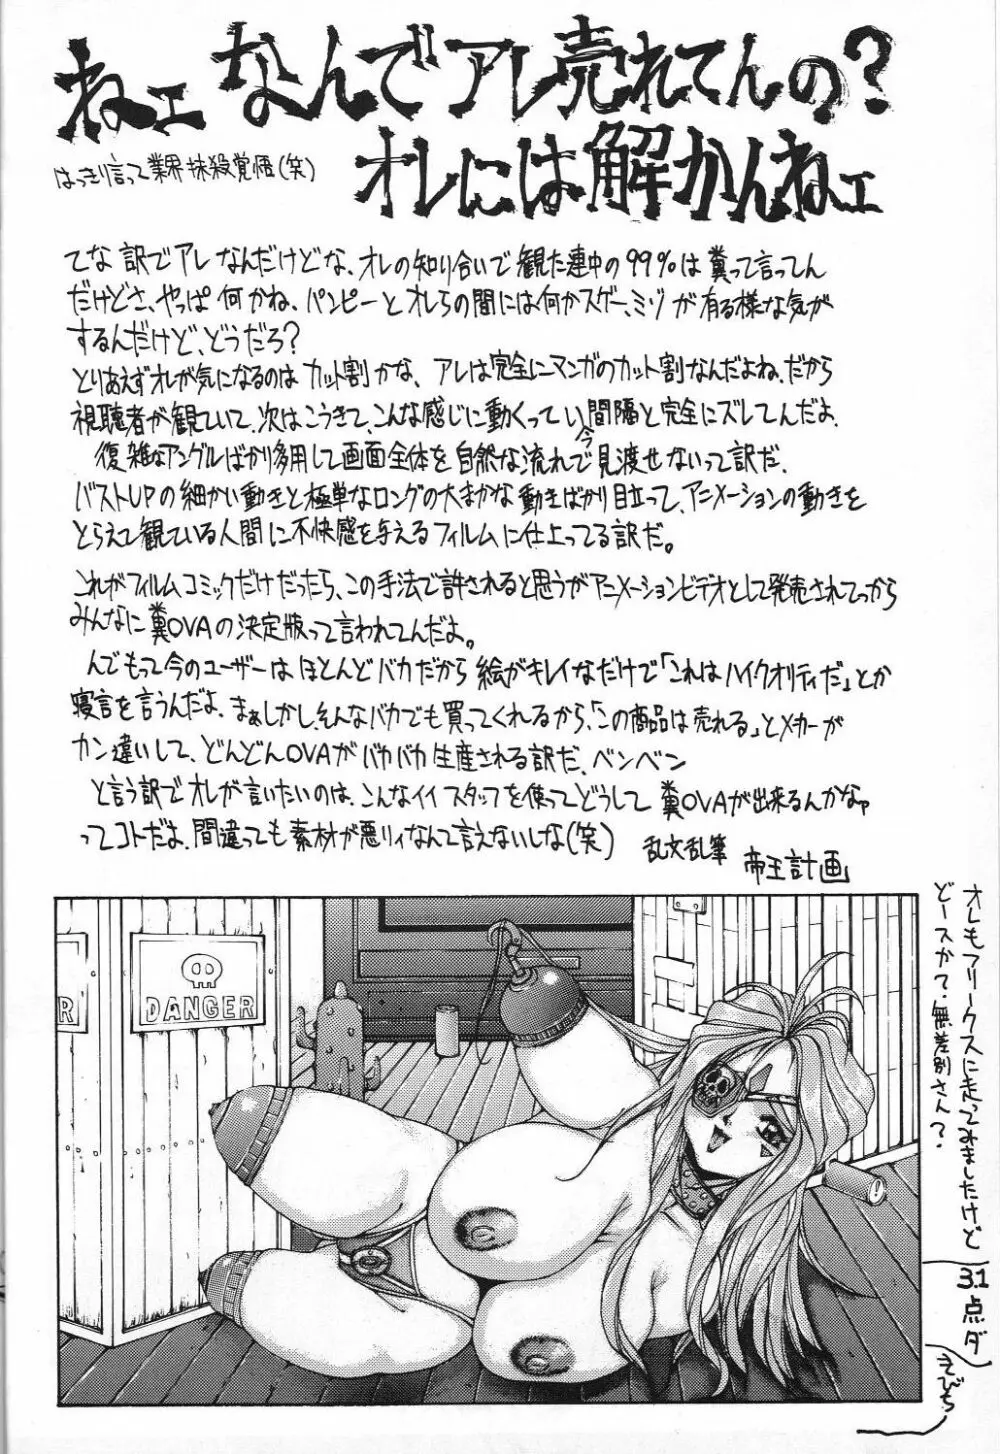 ねェ なんでアレ売れてんの?
オレには解かんねェ
はっきり言って業界抹殺覚悟(笑)
てな訳でアレなんだけどな、オレの知り合いで観た連中の99%は糞って言ってん
だけどさ、やっぱ何かね、パンピーとオレらの間には何かスゲー、ミゾが有る様な気が
するんだけど、どうだろ?
とりあえずオレが気になるのはカット割かな、アレは完全にマンガのカット割なんだよね、だから
視聴者が観ていて、次はこうきて、こんな感じに動くってい間隔と完全にズレてんだよ、
復雑なアングルばかり多用して画面全体を自然な流れで今見渡せないって訳だ、
バストUPの細かい動きと極単なロングの大まかな動きばかり目立って、アニメーションの動きを
とらえて観ている人間に不快感を与えるフィルムに仕上ってる訳だ。
これがフィルムコミックだけだったら、この手法で許されると思うがアニメーションビデオとして発売されてっから
みんなに糞OVAの決定版って言われてんだよ。
んでもって今のユーザーはほとんどバカだから絵がキレイなだけで「これはハイクオリティだ」とか
寝言を言うんだよ、まぁしかし、そんなバカでも買ってくれるから、「この商品は売れる」とメーカーが
カン違いして、どんどんOVAがバカバカ生産される訳だ、ベンベン
と言う訳でオレが言いたいのは、こんなイイスタッフを使ってどうして糞OVAが出来るんかなァ
ってコトだよ、間違っても素材が悪リィなんて言えないしな(笑)
乱文乱筆 帝王計画
オレもフリークスに走ってみましたけど
どースかて、無差別さん?
31点ダ
えびち
R
DANGER